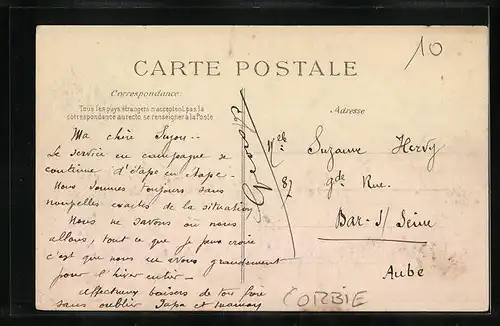 10
CARTE POSTALE
Correspondance
Tous les pays étrangers n'acceptent pas la
correspondance au recto, se renseigner à la Poste
Adresse
Ma chère Suzon..
Le service en campagne se
continue d'étape en étape.
Nous sommes toujours sans
nouvelles exactes de la situation
Nous ne savons où nous
allons, tout ce que je peux croire
c'est que nous en avons grandement
pour l'hiver entier.
affectueux baisers de ton frère
sans oublier Papa et maman
Georges
Melle
Suzanne Hervy
87 gde Rue.
Bar-s/Seine
Aube
CORBIE